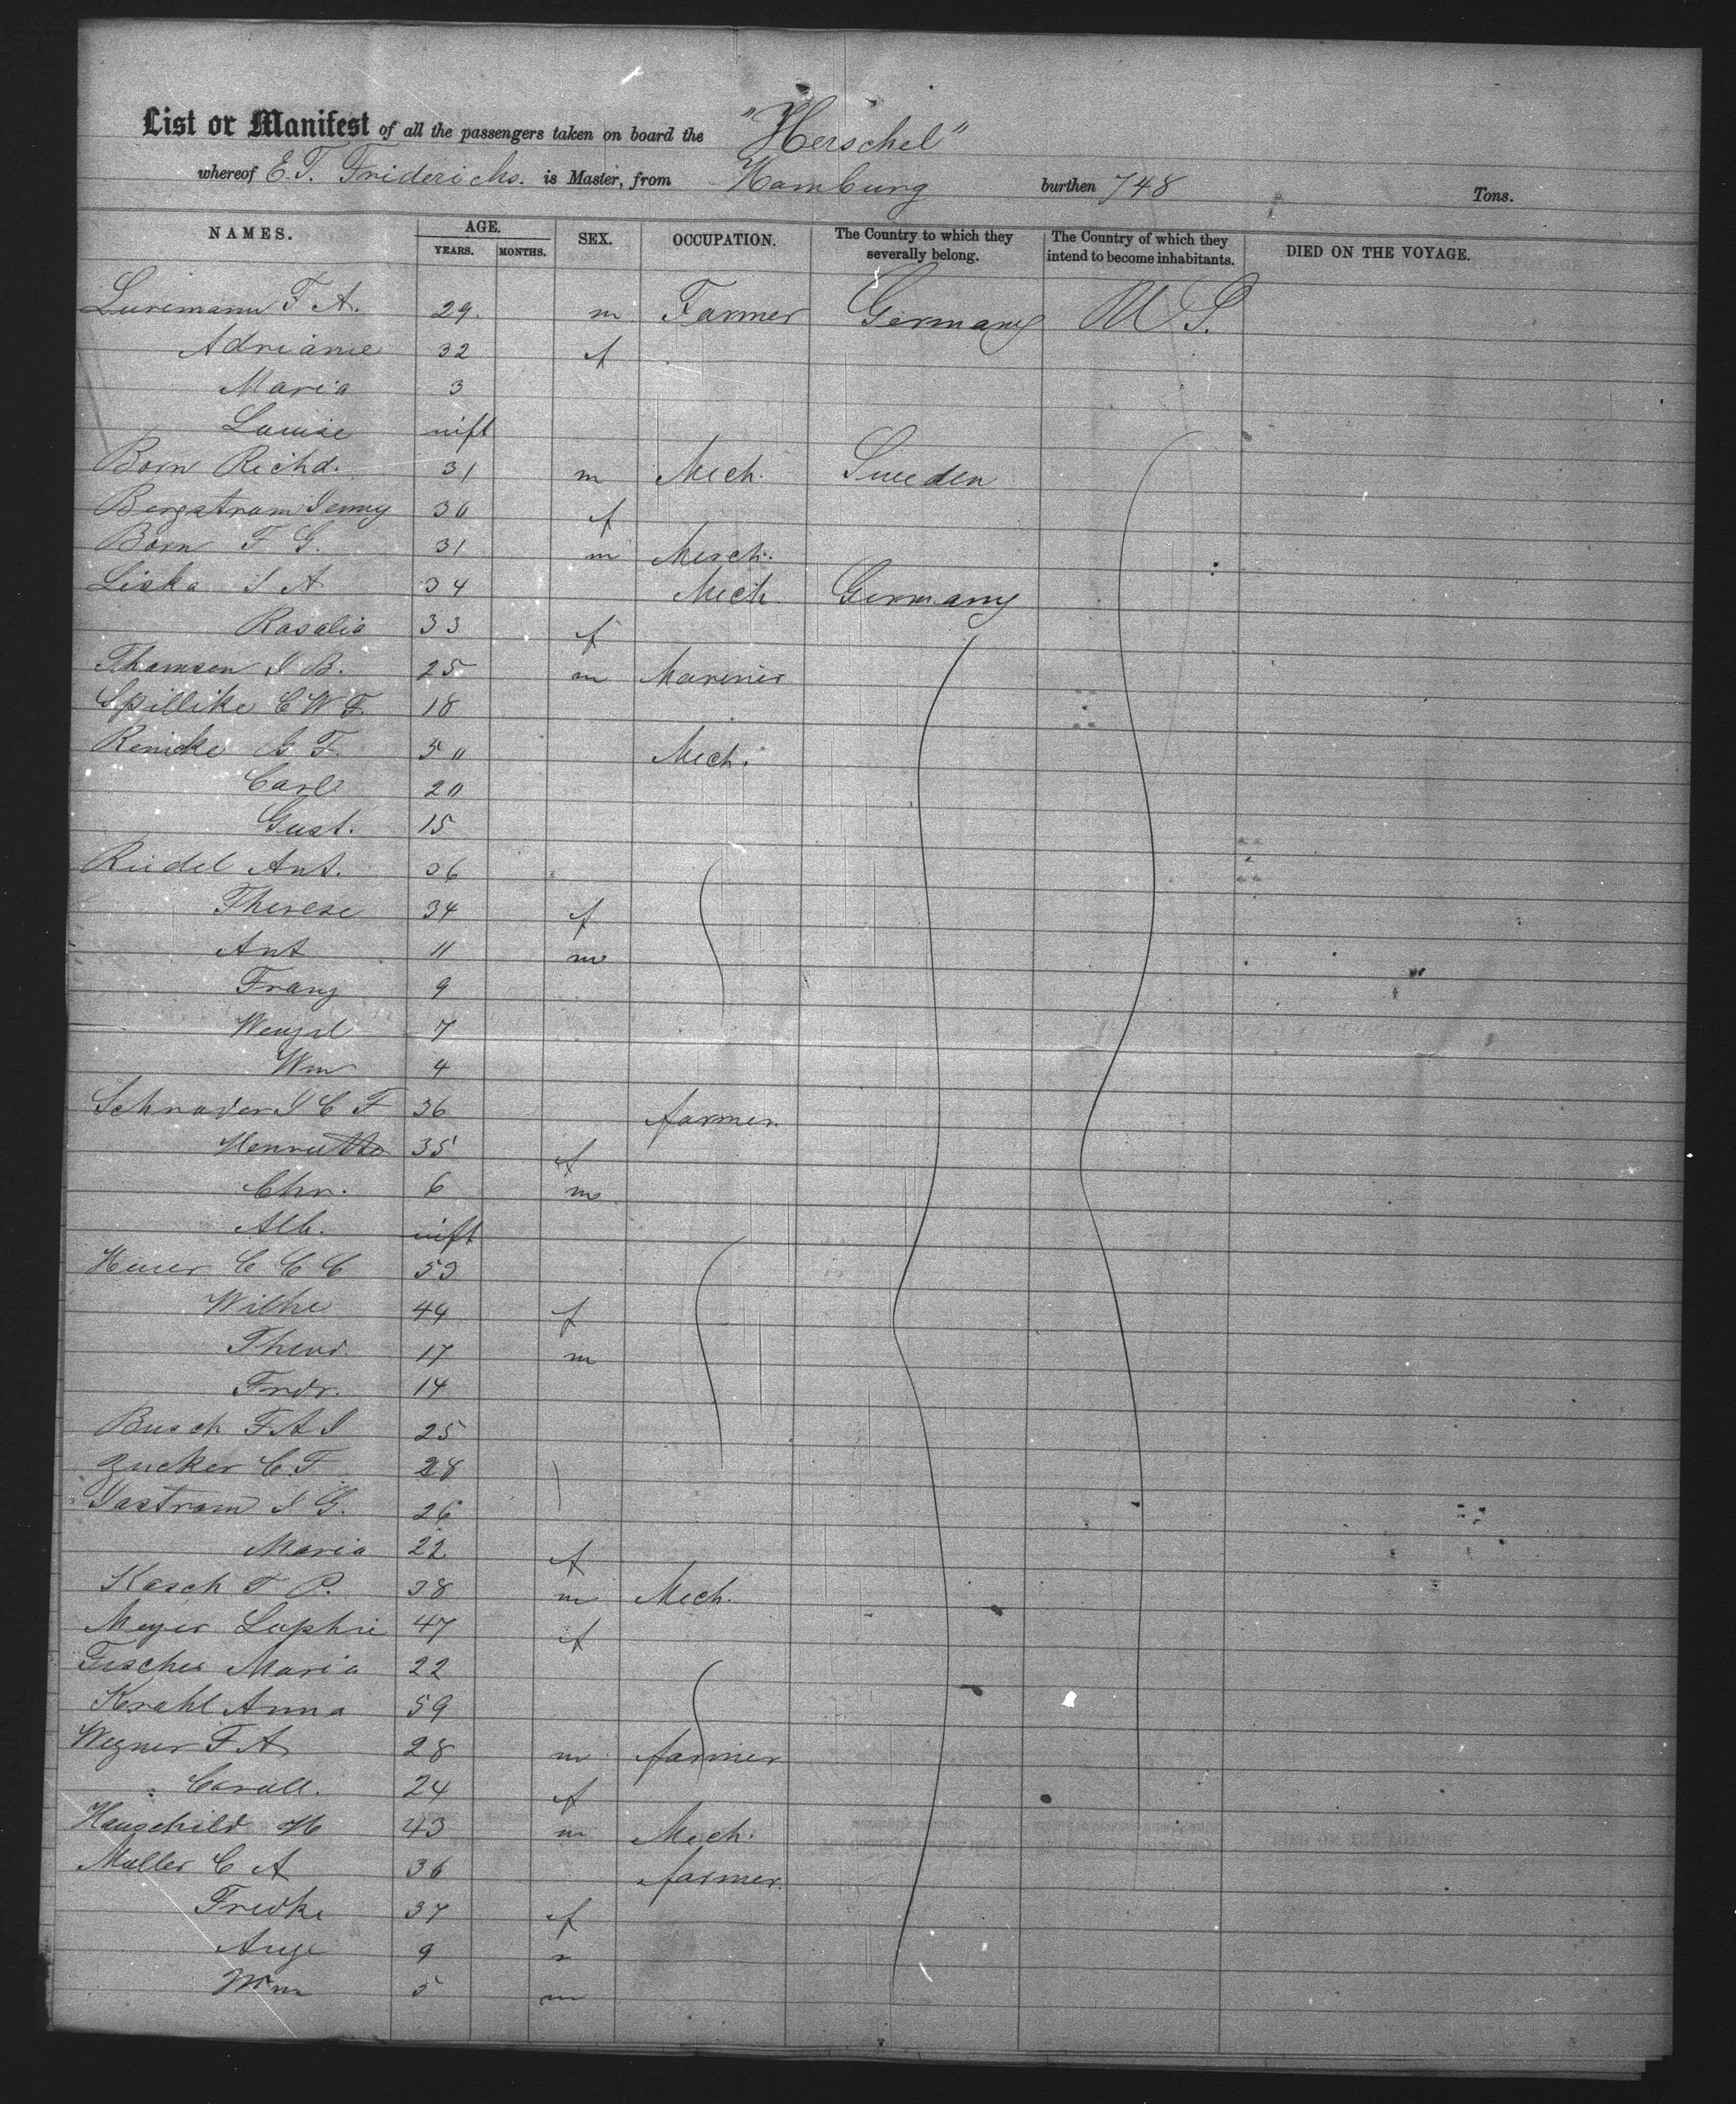 List or Manifest of all the passengers taken on board the "Herschel"
whereof E.T. Friderichs. is Master, from Hamburg burthen 748 Tons.
NAMES. AGE. YEARS. MONTHS. SEX. OCCUPATION. The Country to which they severally belong. The Country of which they intend to become inhabitants. DIED ON THE VOYAGE.
F A. 29. m Farmer Germany U S.
32 f
Maria 3
Louise inft
Born Richd. 31 m Mech. Sweden
Bergstrom Jenny 30 f
Born F G. 31 m Merch.
Liska J A 34 Mech. Germany
Rosalia 33 f
Thomsen J B. 25 m Mariner
Spillike C W F. 18
Renicke G F. 50 Mech.
Carl 20
Gust. 15
Riedel Ant. 36
Therese 34 f
Ant 11 m
Franz 9
Wenzel 7
Wm 4
Schrader J C F 36 farmer.
Henriette 35 f
Chr. 6 m
Alb. inft
Heuer C C C 53
Wilhe 44 f
Theod. 17 m
Frdr. 14
Busch F A J 25
Zucker C F 28
Jastrom J G. 26
Maria 22 f
Kasch F P. 38 m Mech.
Meyer Sophie 47 f
Fischer Maria 22
Krahl Anna 59
Wegner F A 28 m farmer
Caroll. 24 f
Hauschild H 43 m Mech.
Muller C A 36 farmer.
Fredke 37 f
Auge 9
Wm 5 m